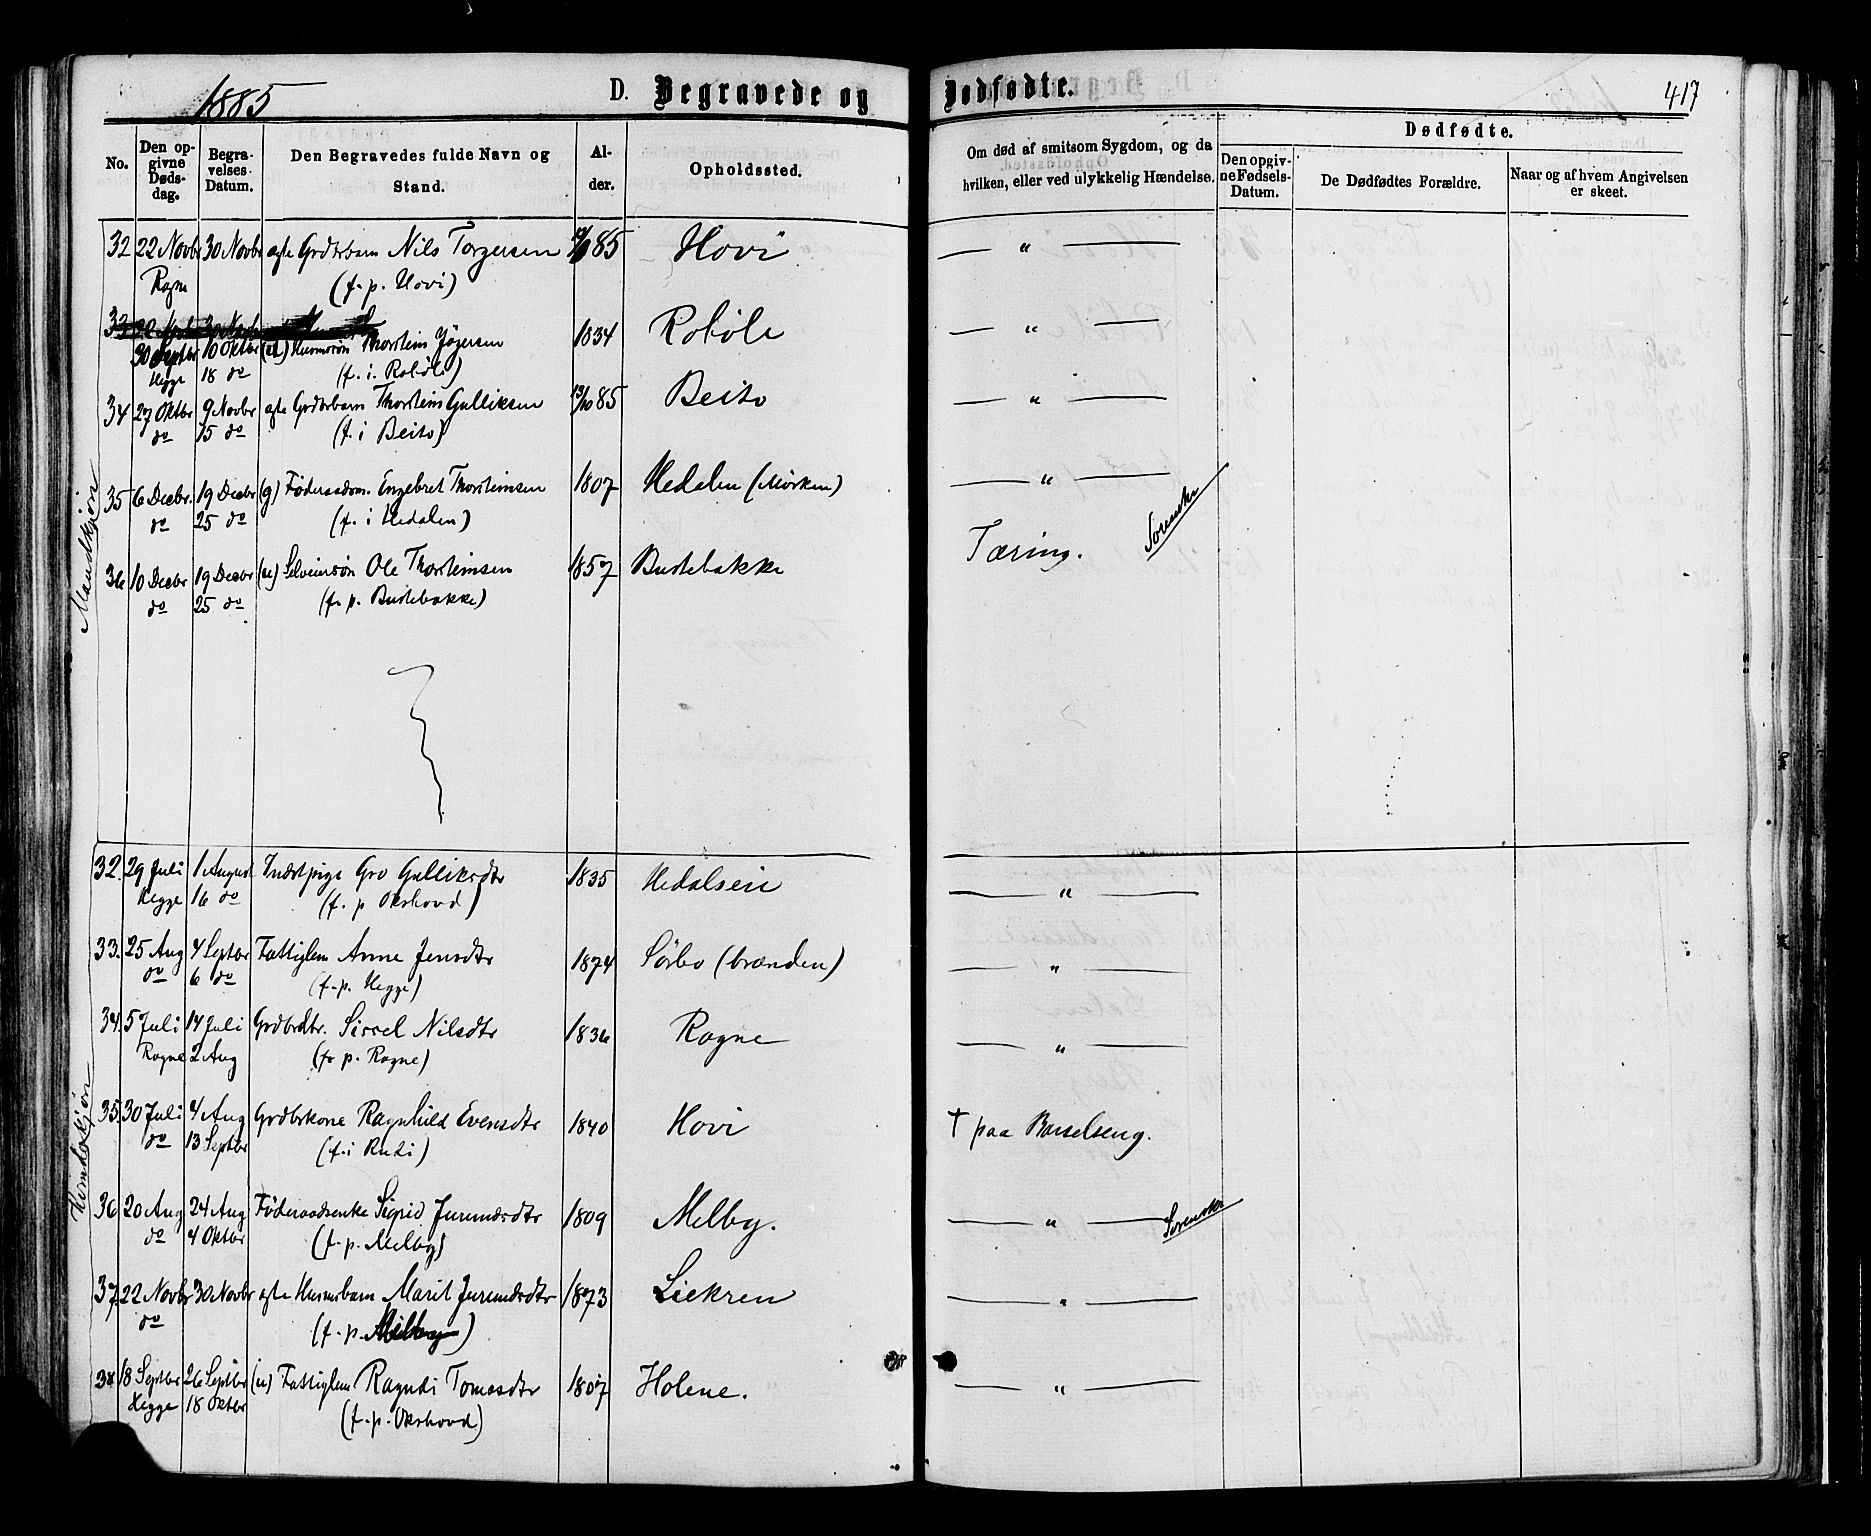 1885
D. Begravede og Dødfødte.
417
No.
Den opgivne Dødsdag.
Begravelses-Datum.
Den Begravedes fulde Navn og Stand.
Alder.
Opholdssted.
Om død af smitsom Sygdom, og da hvilken, eller ved ulykkelig Hændelse.
Dødfødte.
Den opgivne Fødsels-Datum.
De Dødfødtes Forældre.
Naar og af hvem Angivelsen er skeet.
Mandkjøn
32 22 Novbr 30 Novbr ægte Grdbrbarn Nils Torgersen 85 Hovi — " —
Rogne (f. p. Hovi)
33
30 Septbr 10 Oktbr Husmsøn Thorstein 1834 Robøle — " —
Hegge 18 do (f. i. Robøle)
34 27 Oktbr 9 Novbr ægte Grdbrbarn Thorstein Gulliksen 13/10 85 Beito — " —
do 15 do (f. i Beito)
35 6 Decbr. 19 Decbr (g) Føderaadsm. Engebret Thorsteinsen 1807 Hedalen (Mørken) — " —
do 25 do (f. i Hedalen)
36 10 Decbr 19 Decbr (u) Selveiersøn Ole Thorsteinsen 1857 Bustebakke Tæring.
do 25 do (f. p. Bustebakke)
Kvindekjøn
32. 29 Juli 1 August Indstpige Gro Gulliksdtr 1835 Hedalseie — " —
Hegge 16 do (f. p Okshovd)
33. 25 Aug 4 Septbr Fattiglem Anne Jensdtr 1874 Sørbo (brænden) — " —
do 6 do (f. p. Hegge)
34. 5 Juli 14 Juli Grdbrdtr. Sissel Nilsdtr 1836 Rogne — " —
Rogne 2 Aug (f. p. Rogne)
35. 30 Juli 4 Aug Grdbrkone Ragnhild Evensdtr 1840 Hovi † paa Barselseng.
do 13 Septbr (f. i Rudi)
36 20 Aug 24 Aug Føderaadsenke Sigrid Jurundsdtr 1809 Melby. — " —
do 4 Oktbr (f. p. Melby)
37. 22 Novbr 30 Novbr ægte Husmbarn Marit Jurundsdtr 1873 Liekren — " —
do (f. p. Melby)
38 18 Septbr 26 Septbr (u) Fattiglem Ragndi Tomasdtr 1807 Holene. — " —
Hegge 18 Oktbr (f. p. Okshovd)